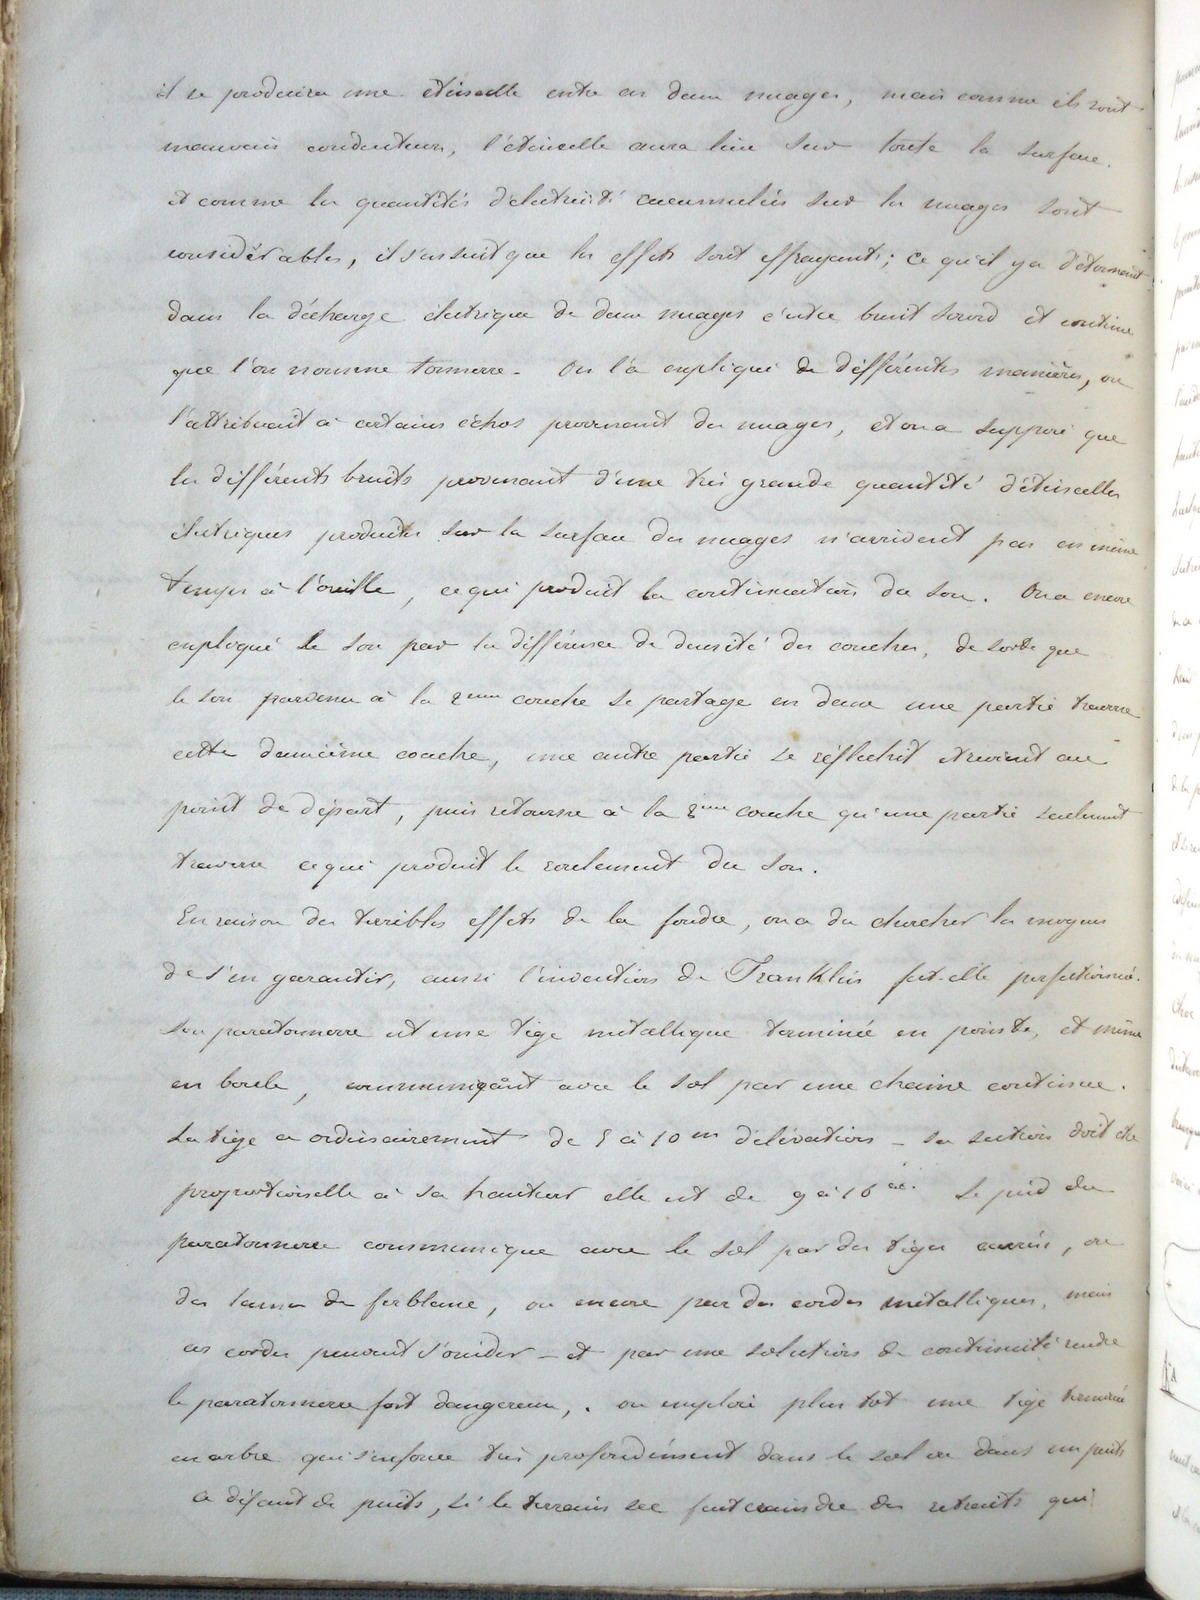 il se produira une étincelle entre ces deux nuages, mais comme ils sont
mauvais conducteurs, l'étincelle aura lieu sur toute la surface.
et comme les quantités d'électricité accumulées sur les nuages sont
considérables, il s'ensuit que les effets sont effrayants; ce qu'il y a d'étonnant
dans la décharge électrique de deux nuages c'est ce bruit sourd et continu
que l'on nomme tonnerre - On l'a expliqué de différentes manières, on
l'attribuait à certains échos provenant des nuages, et on a supposé que
les différents bruits provenant d'une très grande quantité d'étincelles
électriques produites sur la surface des nuages n'arrivent pas en même
temps à l'oreille, ce qui produit la continuation du son. On a encore
expliqué le son par la différence de densité des couches, de sorte que
le son parvenu à la 2eme couche se partage en deux une partie traverse
cette deuxième couche, une autre partie se réfléchit et revient au
point de départ, puis retourne à la 2eme couche qu'une partie seulement
traverse ce qui produit le roulement du son.
En raison des terribles effets de la foudre, on a du chercher les moyens
de s'en garantir, aussi l'invention de Franklin fut-elle perfectionné.
Son paratonnerre est une tige métallique terminée en pointe, et même
en boule, communiquant avec le sol par une chaine continue.
La tige a ordinairement de 5 à 10 m d'élévation - sa section doit être
proportionelle à sa hauteur elle est de 9 à 16 Le pied du
paratonnerre communique avec le sol par des tiges carrées, ou
des lames de ferblanc, ou encore par des cordes métalliques, mais
ces cordes peuvent s'oxider - et par une solution de continuité rendre
le paratonnerre fort dangereux, . on emploie plus tot une tige terminée
en arbre qui s'enfonce très profondément dans le sol ou dans un puits
a défaut de puits, si le terrain sec fait craindre des retraits qui